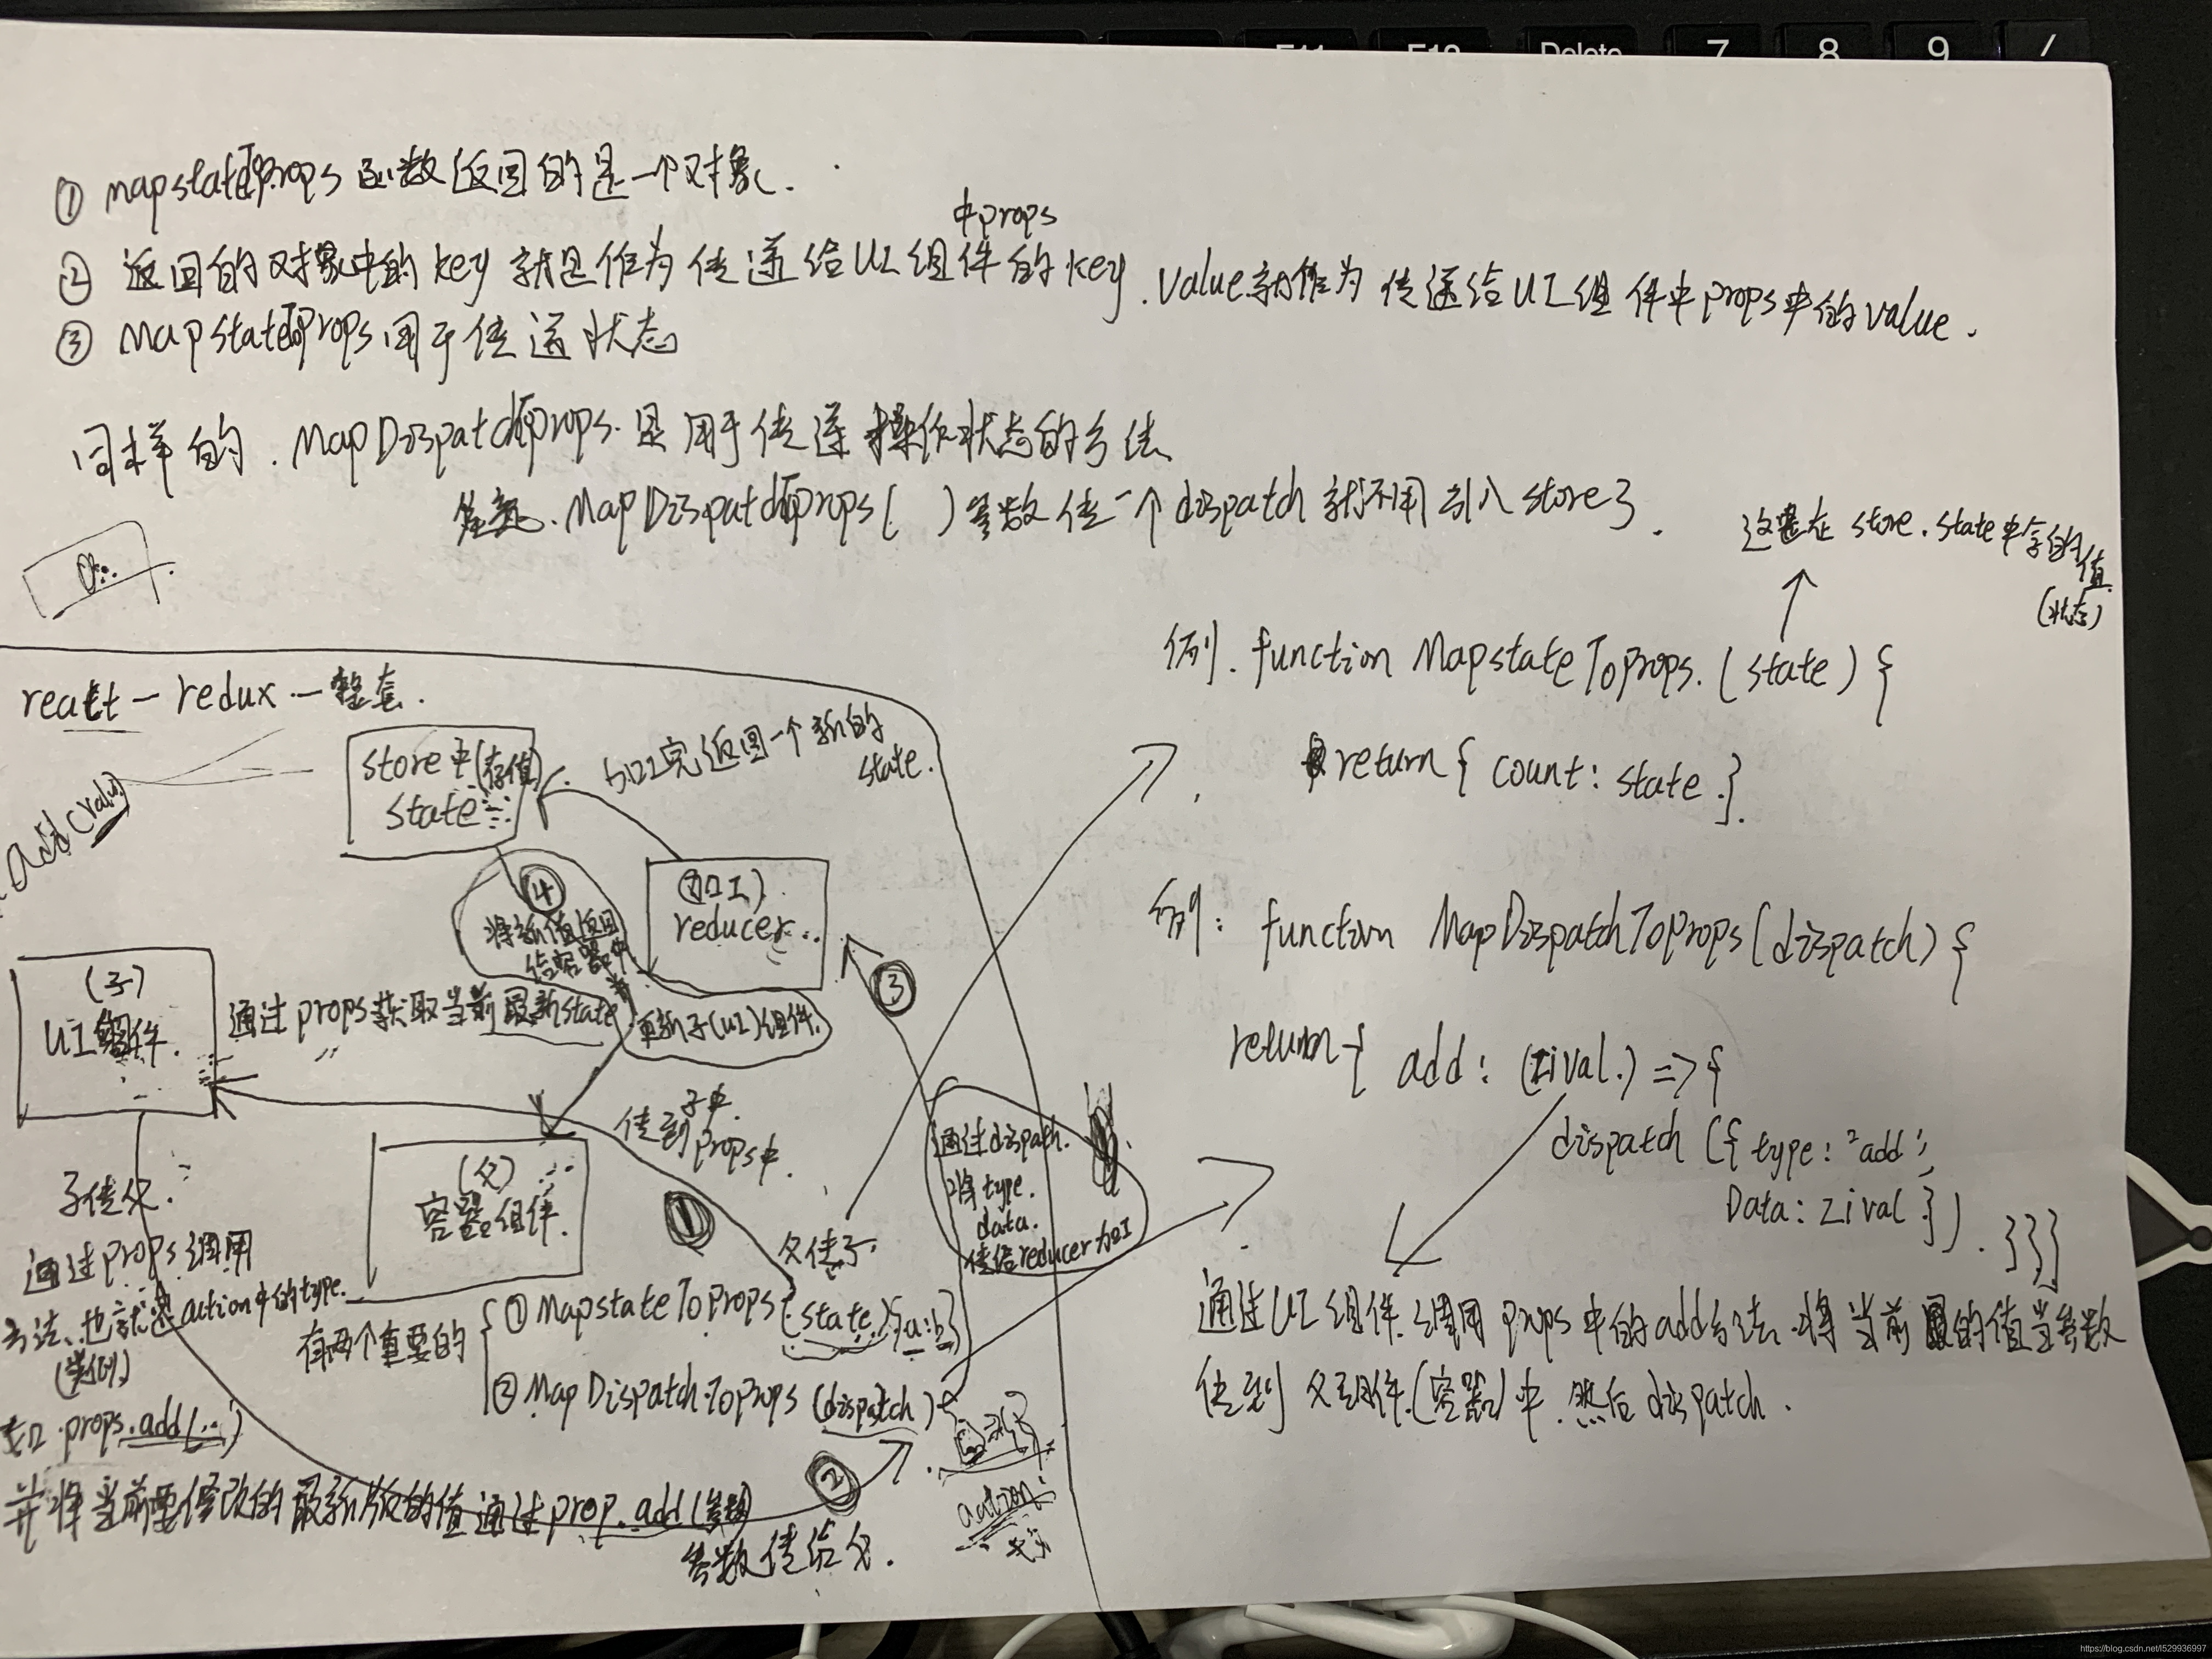 F11 F12 Delete 7 8 9 /
① mapstateToProps 函数返回的是一个对象.
中props
② 返回的对象中的key 就是作为传递给UI组件的key.value就作为传递给UI组件中props中的value.
③ MapstateToProps用于传递状态
同样的.MapDispatchToProps.是用于传递操作状态的方法
MapDispatchToProps( )参数传一个dispatch就不用引入store了.
这是在store.state中存的值
(状态)
例.function MapstateToProps.(state){
return{ count: state.}
例: function MapDispatchToProps(dispatch){
return{ add: (zival.) =>{
dispatch ({ type: "add",
Data: zival }) . }}}
通过UI组件.调用props中的add方法.将当前的值当参数
传到父组件.(容器)中.然后dispatch.
react-redux一整套.
store中(存值)
state
加工完返回一个新的
state.
.add(value)
(加工)
reducer..
④
将新值返回
给容器中
更新子(UI)组件.
③
(子)
UI组件.
通过props获取当前最新state
传到子中.
props中.
(父)
容器组件.
①
父传子.
通过dispath.
将type.
data.
传给reducer加工
子传父.
通过props调用
方法、也就是action中的type.
(类似)
如.props.add(...)
有两个重要的
① MapstateToProps(state){a:b}
② MapDispatchToProps (dispatch){
②
action
并将当前要修改的最新版的值通过prop.add(参数)
参数传给父.
https://blog.csdn.net/l529936997